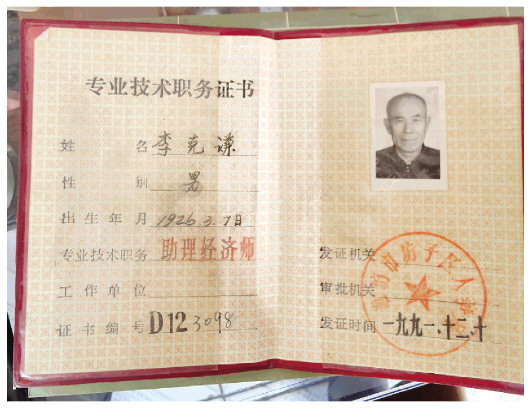 专业技术职务证书
姓名 李克谦
性别 男
出生年月 1926.3.7日
专业技术职务 助理经济师
工作单位
证书编号 D123098
发证机关
审批机关
发证时间 一九九一.十二.十
市坊子区人